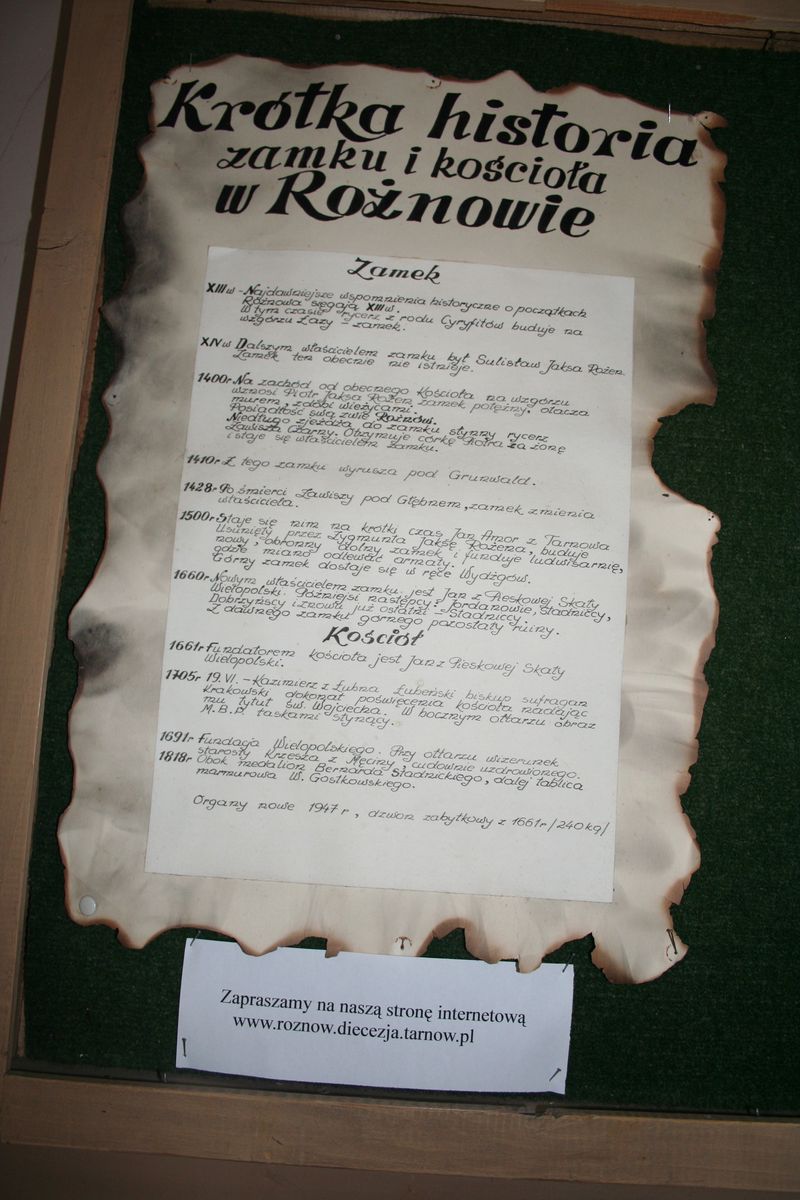 Krótka historia
zamku i kościoła
w Rożnowie
Zamek
XIII w - Najdawniejsze wspomnienia historyczne o początkach
Rożnowa sięgają XIII w.
W tym czasie rycerz z rodu Cyryfitów buduje na
wzgórzu Łazy - zamek.
XIV w Dalszym właścicielem zamku był Sulisław Jaksa Rożen.
Zamek ten obecnie nie istnieje.
1400r Na zachód od obecnego Kościoła na wzgórzu
wznosi Piotr Jaksa Rożen zamek potężny, otacza
murem, zdobi wieżycami.
Posiadłość swą zwie Rożnów.
Niedługo zjeżdża do zamku słynny rycerz
Zawisza Czarny. Otrzymuje córkę Piotra za żonę
i staje się właścicielem zamku.
1410r Z tego zamku wyrusza pod Grunwald.
1428r Po śmierci Zawiszy pod Głębnem, zamek zmienia
właściciela.
1500r Staje się nim na krótki czas Jan Amor z Tarnowa
Usunięty przez Zygmunta Jaksę Rożena, buduje
nowy, obronny dolny zamek i funduje ludwisarnię,
gdzie miano odlewać armaty.
Górny zamek dostaje się w ręce Wydżgów.
1660r Nowym właścicielem zamku jest Jan z Pieskowej Skały
Wielopolski. Późniejsi następcy: Jordanowie, Stadniccy,
Dobrzyńscy i znowu już ostatni - Stadniccy.
Z dawnego zamku górnego pozostały ruiny.
Kościół
1661r Fundatorem kościoła jest Jan z Pieskowej Skały
Wielopolski.
1705r 19.VI. - Kazimierz z Łubna Łubeński biskup sufragan
Krakowski dokonał poświęcenia kościoła nadając
mu tytuł św. Wojciecha. W bocznym ołtarzu obraz
M.B.P. łaskami słynący.
1691r Fundacja Wielopolskiego. Przy ołtarzu wizerunek
starosty Krzesza z Męciny, cudownie uzdrowionego.
1818r Obok medalion Bernarda Stadnickiego, dalej tablica
marmurowa W. Gostkowskiego.
Organy nowe 1947 r, dzwon zabytkowy z 1661r /240 kg/
Zapraszamy na naszą stronę internetową
www.roznow.diecezja.tarnow.pl